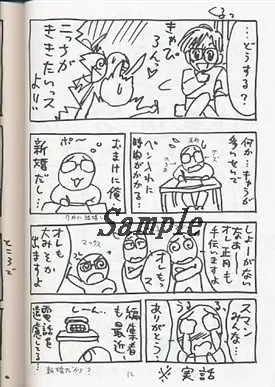 くるっ
…どうする？
きゃぴ
ろんっ
こっちが
ききたいっス
よ!!
何か…キャラが
多いせいで
ペン入れに
時間がかかる…
ポ〜
おまけに俺
新婚だし…
しょーがない
なあ
オレ正月も
手伝いますよ
オレもっス
マックス
オレも
大みそか
出ますよ
スマン
みんな…
ありがとう…
うるうる
しーん…
編集者
も最近
電話を
遠慮しる…
新婚だから？
12
※実話
ところで
Sample